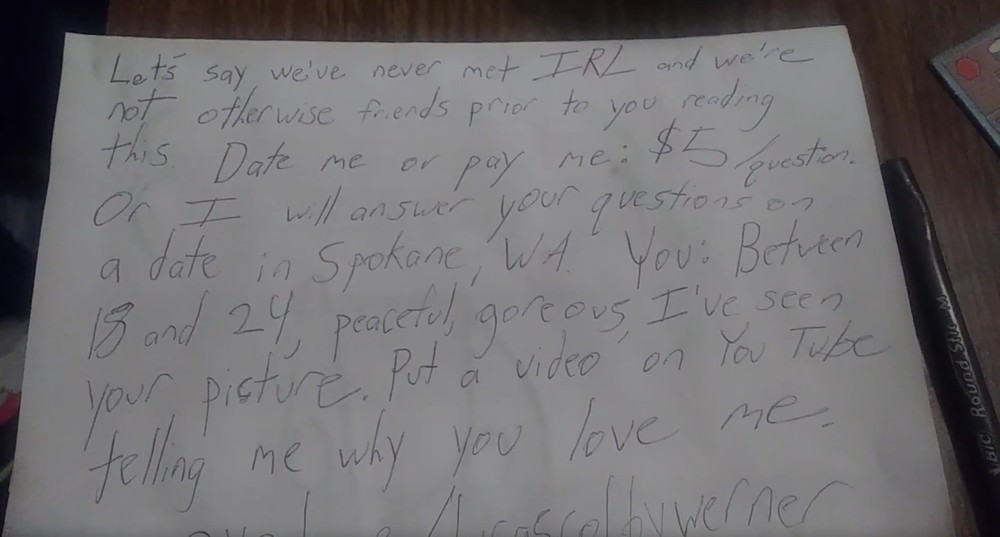 Let's say we've never met IRL and we're
not otherwise friends prior to you reading
this. Date me or pay me: $5/question.
Or I will answer your questions on
a date in Spokane, WA. You: Between
18 and 24, peaceful, goreous, I've seen
your picture. Put a video on You Tube
telling me why you love me.
BIC Round Stic M